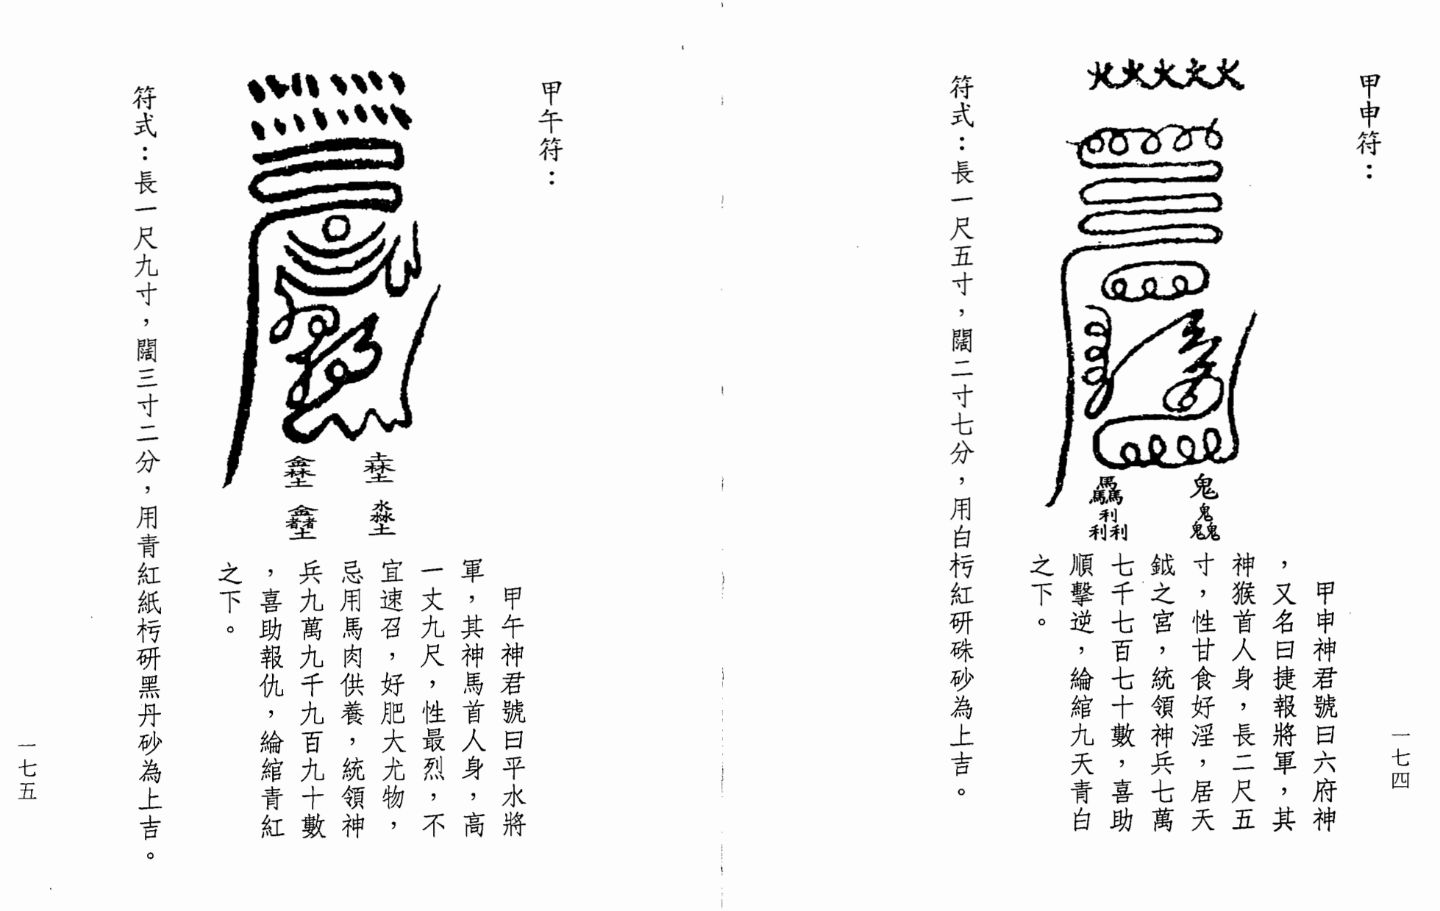 甲申符：
火火火火火
鬼
鬼
鬼鬼
馬
馬馬
利
利利
甲申神君號曰六府神
，又名曰捷報將軍，其
神猴首人身，長二尺五
寸，性甘食好淫，居天
鉞之宮，統領神兵七萬
七千七百七十數，喜助
順擊逆，綸綰九天青白
之下。
符式：長一尺五寸，闊二寸七分，用白杇紅研硃砂為上吉。
一七四
甲午符：
甲午神君號曰平水將
軍，其神馬首人身，高
一丈九尺，性最烈，不
宜速召，好肥大尤物，
忌用馬肉供養，統領神
兵九萬九千九百九十數
，喜助報仇，綸綰青紅
之下。
符式：長一尺九寸，闊三寸二分，用青紅紙杇研黑丹砂為上吉。
一七五